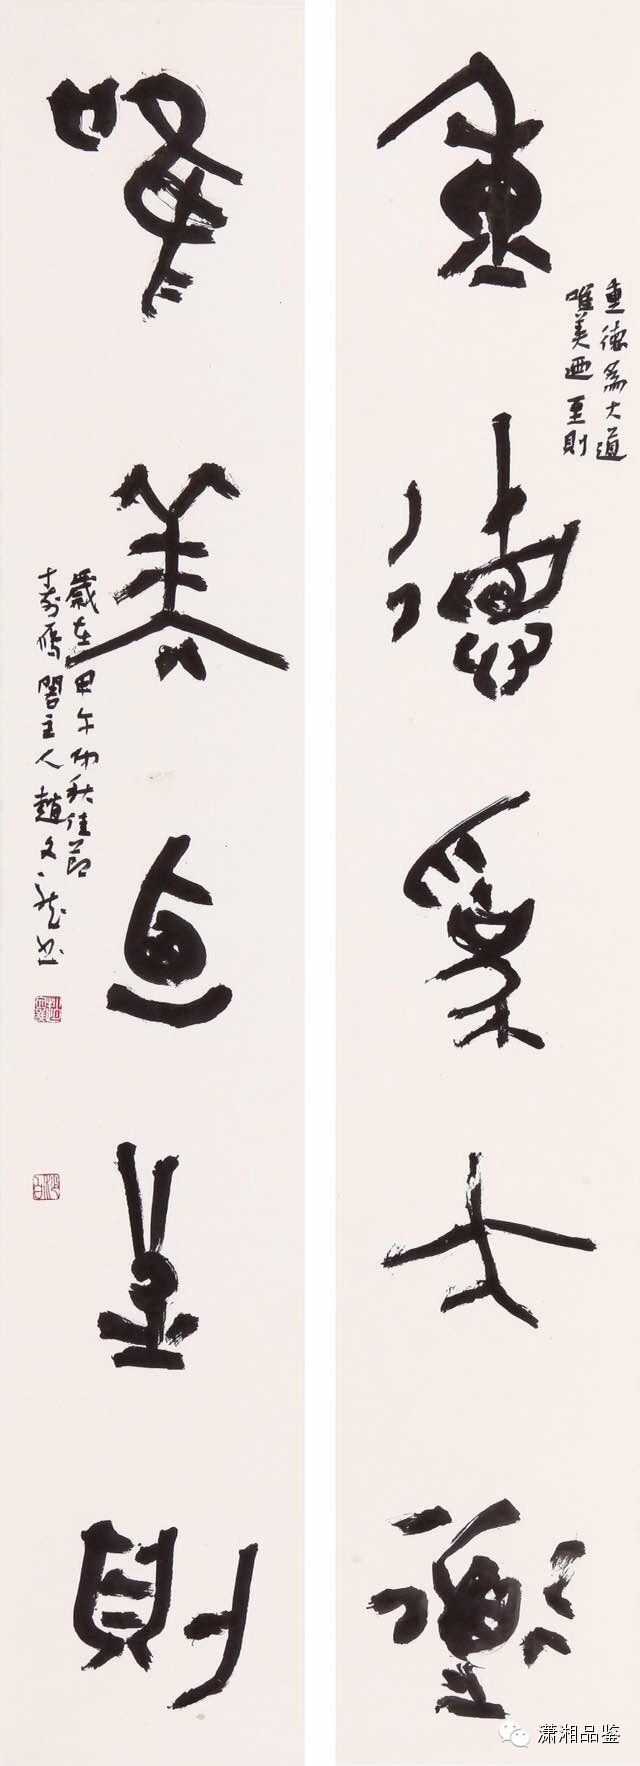 重德為大道
重德為大道
唯美迺至則
唯美迺至則
歲在甲午仲秋佳節
閣主人趙文龍書
潇湘品鉴